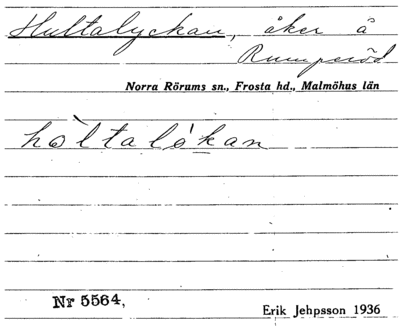 Hultalyckan, åker å
Rumperöd
Norra Rörums sn., Frosta hd., Malmöhus län
hòltaló̀kan
Nr 5564,
Erik Jehpsson 1936